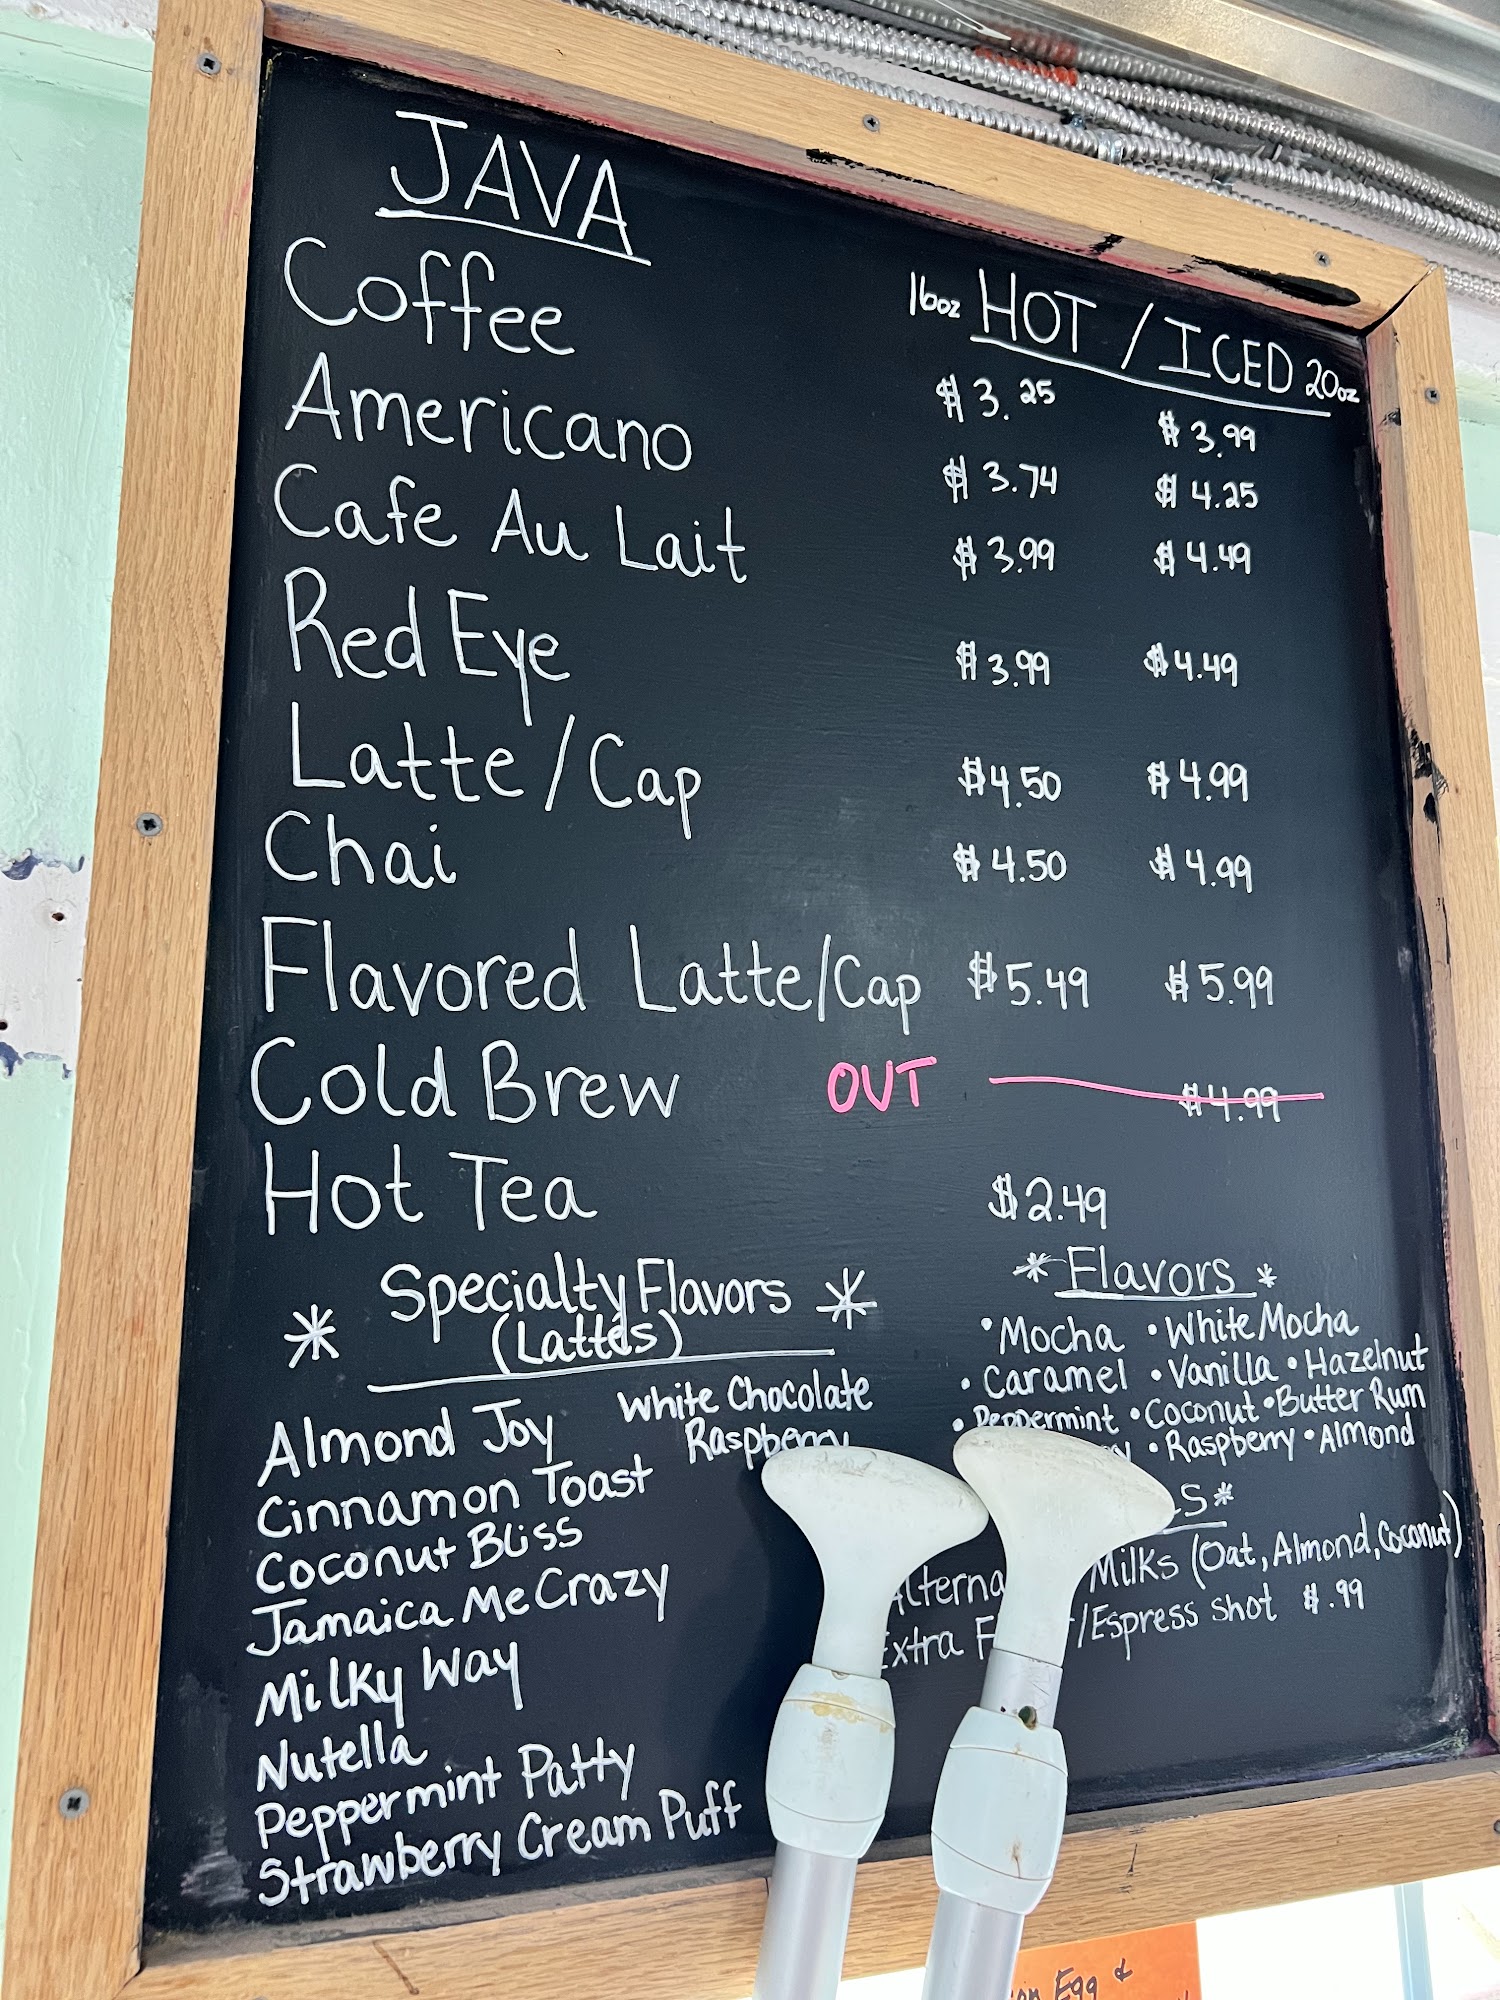 JAVA
16oz HOT / ICED 20oz
Coffee $3.25 $3.99
Americano $3.74 $4.25
Cafe Au Lait $3.99 $4.49
Red Eye $3.99 $4.49
Latte/Cap $4.50 $4.99
Chai $4.50 $4.99
Flavored Latte/Cap $5.49 $5.99
Cold Brew OUT $4.99
Hot Tea $2.49
* Specialty Flavors *
(Lattés)
Almond Joy
White Chocolate
Raspberry
Cinnamon Toast
Coconut Bliss
Jamaica Me Crazy
Milky Way
Nutella
Peppermint Patty
Strawberry Cream Puff
* Flavors *
•Mocha •White Mocha
•Caramel •Vanilla •Hazelnut
•Peppermint •Coconut •Butter Rum
•Raspberry •Almond
Milks (Oat, Almond, Coconut)
Extra /Espress shot $.99
Egg &